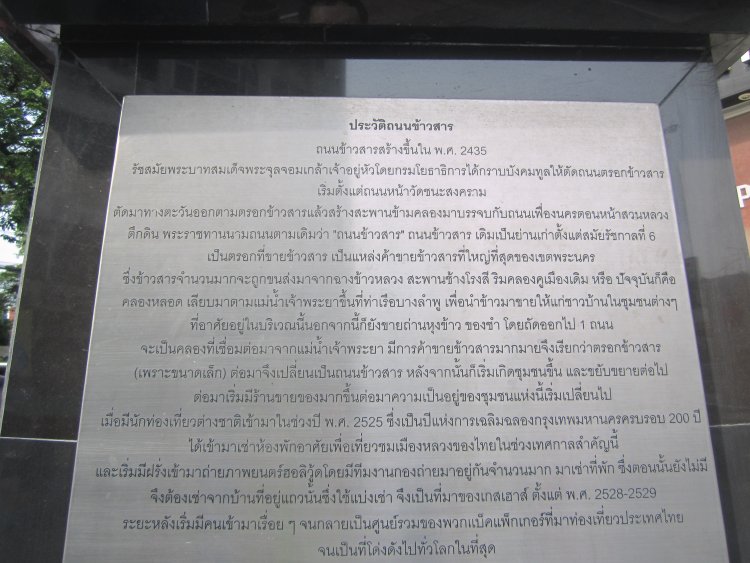 ประวัติถนนข้าวสาร
ถนนข้าวสารสร้างขึ้นใน พ.ศ. 2435
รัชสมัยพระบาทสมเด็จพระจุลจอมเกล้าเจ้าอยู่หัวโดยกรมโยธาธิการได้กราบบังคมทูลให้ตัดถนนตรอกข้าวสาร
เริ่มตั้งแต่ถนนหน้าวัดชนะสงคราม
ตัดมาทางตะวันออกตามตรอกข้าวสารแล้วสร้างสะพานข้ามคลองมาบรรจบกับถนนเฟื่องนครตอนหน้าสวนหลวง
ตึกดิน พระราชทานนามถนนตามเดิมว่า "ถนนข้าวสาร" ถนนข้าวสาร เดิมเป็นย่านเก่าตั้งแต่สมัยรัชกาลที่ 6
เป็นตรอกที่ขายข้าวสาร เป็นแหล่งค้าขายข้าวสารที่ใหญ่ที่สุดของเขตพระนคร
ซึ่งข้าวสารจำนวนมากจะถูกขนส่งมาจากฉางข้าวหลวง สะพานช้างโรงสี ริมคลองคูเมืองเดิม หรือ ปัจจุบันก็คือ
คลองหลอด เลียบมาตามแม่น้ำเจ้าพระยาขึ้นที่ท่าเรือบางลำพู เพื่อนำข้าวมาขายให้แก่ชาวบ้านในชุมชนต่างๆ
ที่อาศัยอยู่ในบริเวณนี้นอกจากนี้ก็ยังขายถ่านหุงข้าว ของชำ โดยถัดออกไป 1 ถนน
จะเป็นคลองที่เชื่อมต่อมาจากแม่น้ำเจ้าพระยา มีการค้าขายข้าวสารมากมายจึงเรียกว่าตรอกข้าวสาร
(เพราะขนาดเล็ก) ต่อมาจึงเปลี่ยนเป็นถนนข้าวสาร หลังจากนั้นก็เริ่มเกิดชุมชนขึ้น และขยับขยายต่อไป
ต่อมาเริ่มมีร้านขายของมากขึ้นต่อมาความเป็นอยู่ของชุมชนแห่งนี้เริ่มเปลี่ยนไป
เมื่อมีนักท่องเที่ยวต่างชาติเข้ามาในช่วงปี พ.ศ. 2525 ซึ่งเป็นปีแห่งการเฉลิมฉลองกรุงเทพมหานครครบรอบ 200 ปี
ได้เข้ามาเช่าห้องพักอาศัยเพื่อเที่ยวชมเมืองหลวงของไทยในช่วงเทศกาลสำคัญนี้
และเริ่มมีฝรั่งเข้ามาถ่ายภาพยนตร์ฮอลิวู้ดโดยมีทีมงานกองถ่ายมาอยู่กันจำนวนมาก มาเช่าที่พัก ซึ่งตอนนั้นยังไม่มี
จึงต้องเช่าจากบ้านที่อยู่แถวนั้นซึ่งใช้แบ่งเช่า จึงเป็นที่มาของเกสเฮาส์ ตั้งแต่ พ.ศ. 2528-2529
ระยะหลังเริ่มมีคนเข้ามาเรื่อย ๆ จนกลายเป็นศูนย์รวมของพวกแบ็คแพ็กเกอร์ที่มาท่องเที่ยวประเทศไทย
จนเป็นที่โด่งดังไปทั่วโลกในที่สุด